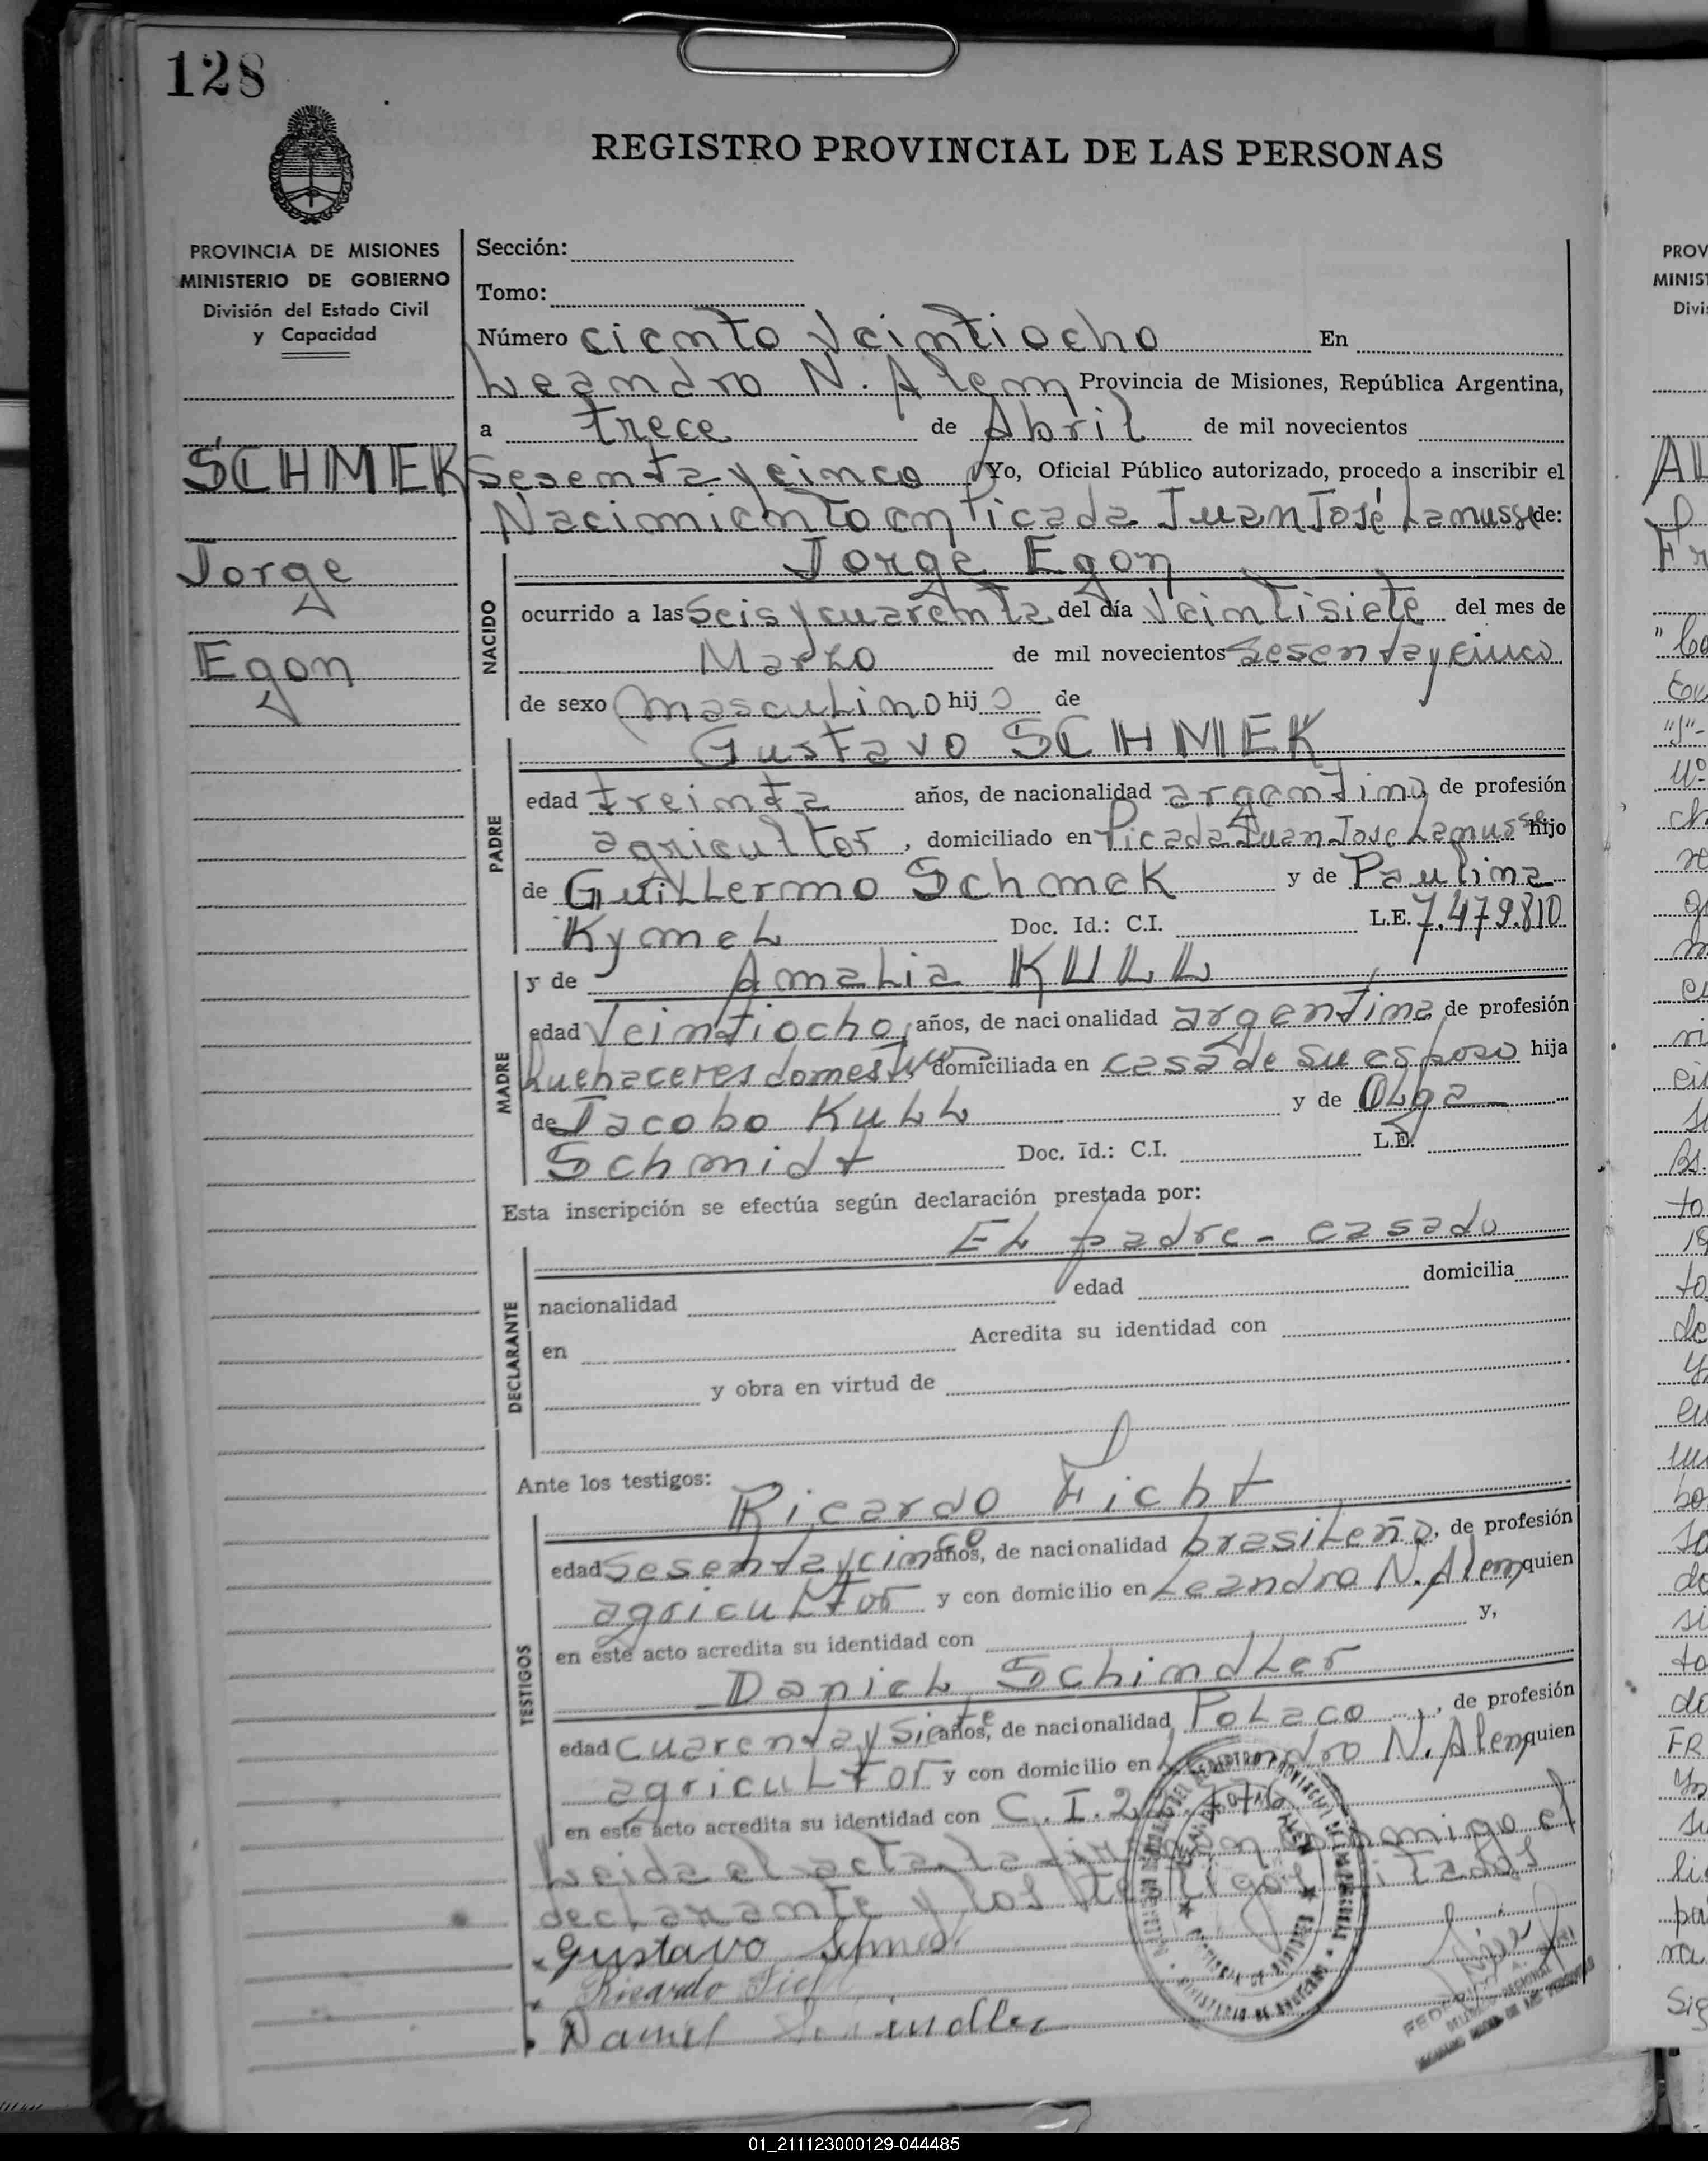 128
REGISTRO PROVINCIAL DE LAS PERSONAS
PROVINCIA DE MISIONES
MINISTERIO DE GOBIERNO
División del Estado Civil
y Capacidad
SCHMEK
Jorge
Egon
Sección:
Tomo:
Número ciento veintiocho En
Leandro N. Alem Provincia de Misiones, República Argentina,
a trece de Abril de mil novecientos
sesenta y cinco Yo, Oficial Público autorizado, procedo a inscribir el
Nacimiento en Picada Juan José Lanusse de:
NACIDO
Jorge Egon
ocurrido a las seis y cuarenta del día veintisiete del mes de
Marzo de mil novecientos sesenta y cinco
de sexo masculino hijo de
PADRE
Gustavo SCHMEK
edad treinta años, de nacionalidad argentino de profesión
agricultor, domiciliado en Picada Juan Jose Lanusse hijo
de Guillermo Schmek y de Paulina
Kymel Doc. Id.: C.I. L.E. 7.479.810
MADRE
y de Amalia KULL
edad veintiocho, años, de nacionalidad argentina de profesión
quehaceres domesticos domiciliada en casa de su esposo hija
de Jacobo Kull y de Olga
Schmidt Doc. Id.: C.I. L.E.
Esta inscripción se efectúa según declaración prestada por:
DECLARANTE
El padre - casado
nacionalidad edad domicilia
en Acredita su identidad con
y obra en virtud de
Ante los testigos:
TESTIGOS
Ricardo Ficht
edad sesenta y cinco años, de nacionalidad brasileño, de profesión
agricultor y con domicilio en Leandro N. Alem quien
en este acto acredita su identidad con y,
Daniel Schindler
edad cuarenta y siete años, de nacionalidad Polaco, de profesión
agricultor y con domicilio en Leandro N. Alem quien
en este acto acredita su identidad con C.I.
Leida el acta la firman conmigo el
declarante y los testigos citados
Gustavo
Ricardo
Daniel
PROV
MINIS
Divi
01_211123000129-044485